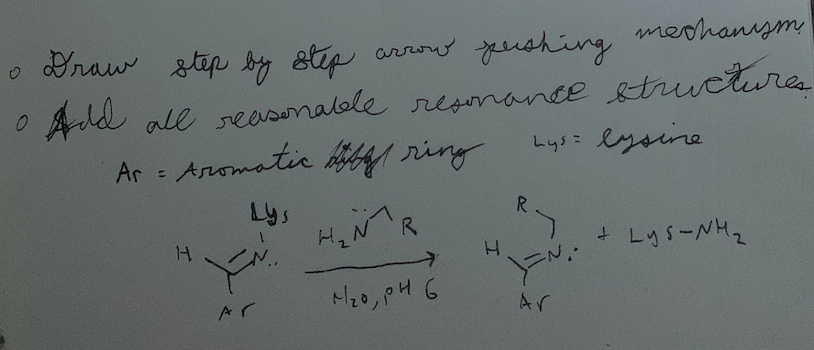 ○ Draw step by step arrow pushing mechanism.
○ Add all reasonable resonance structures.
Ar = Aromatic ring Lys = lysine
Lys
H N: Ar
H₂N̈ R
H₂O, pH 6
R
H N: Ar + Lys-NH₂